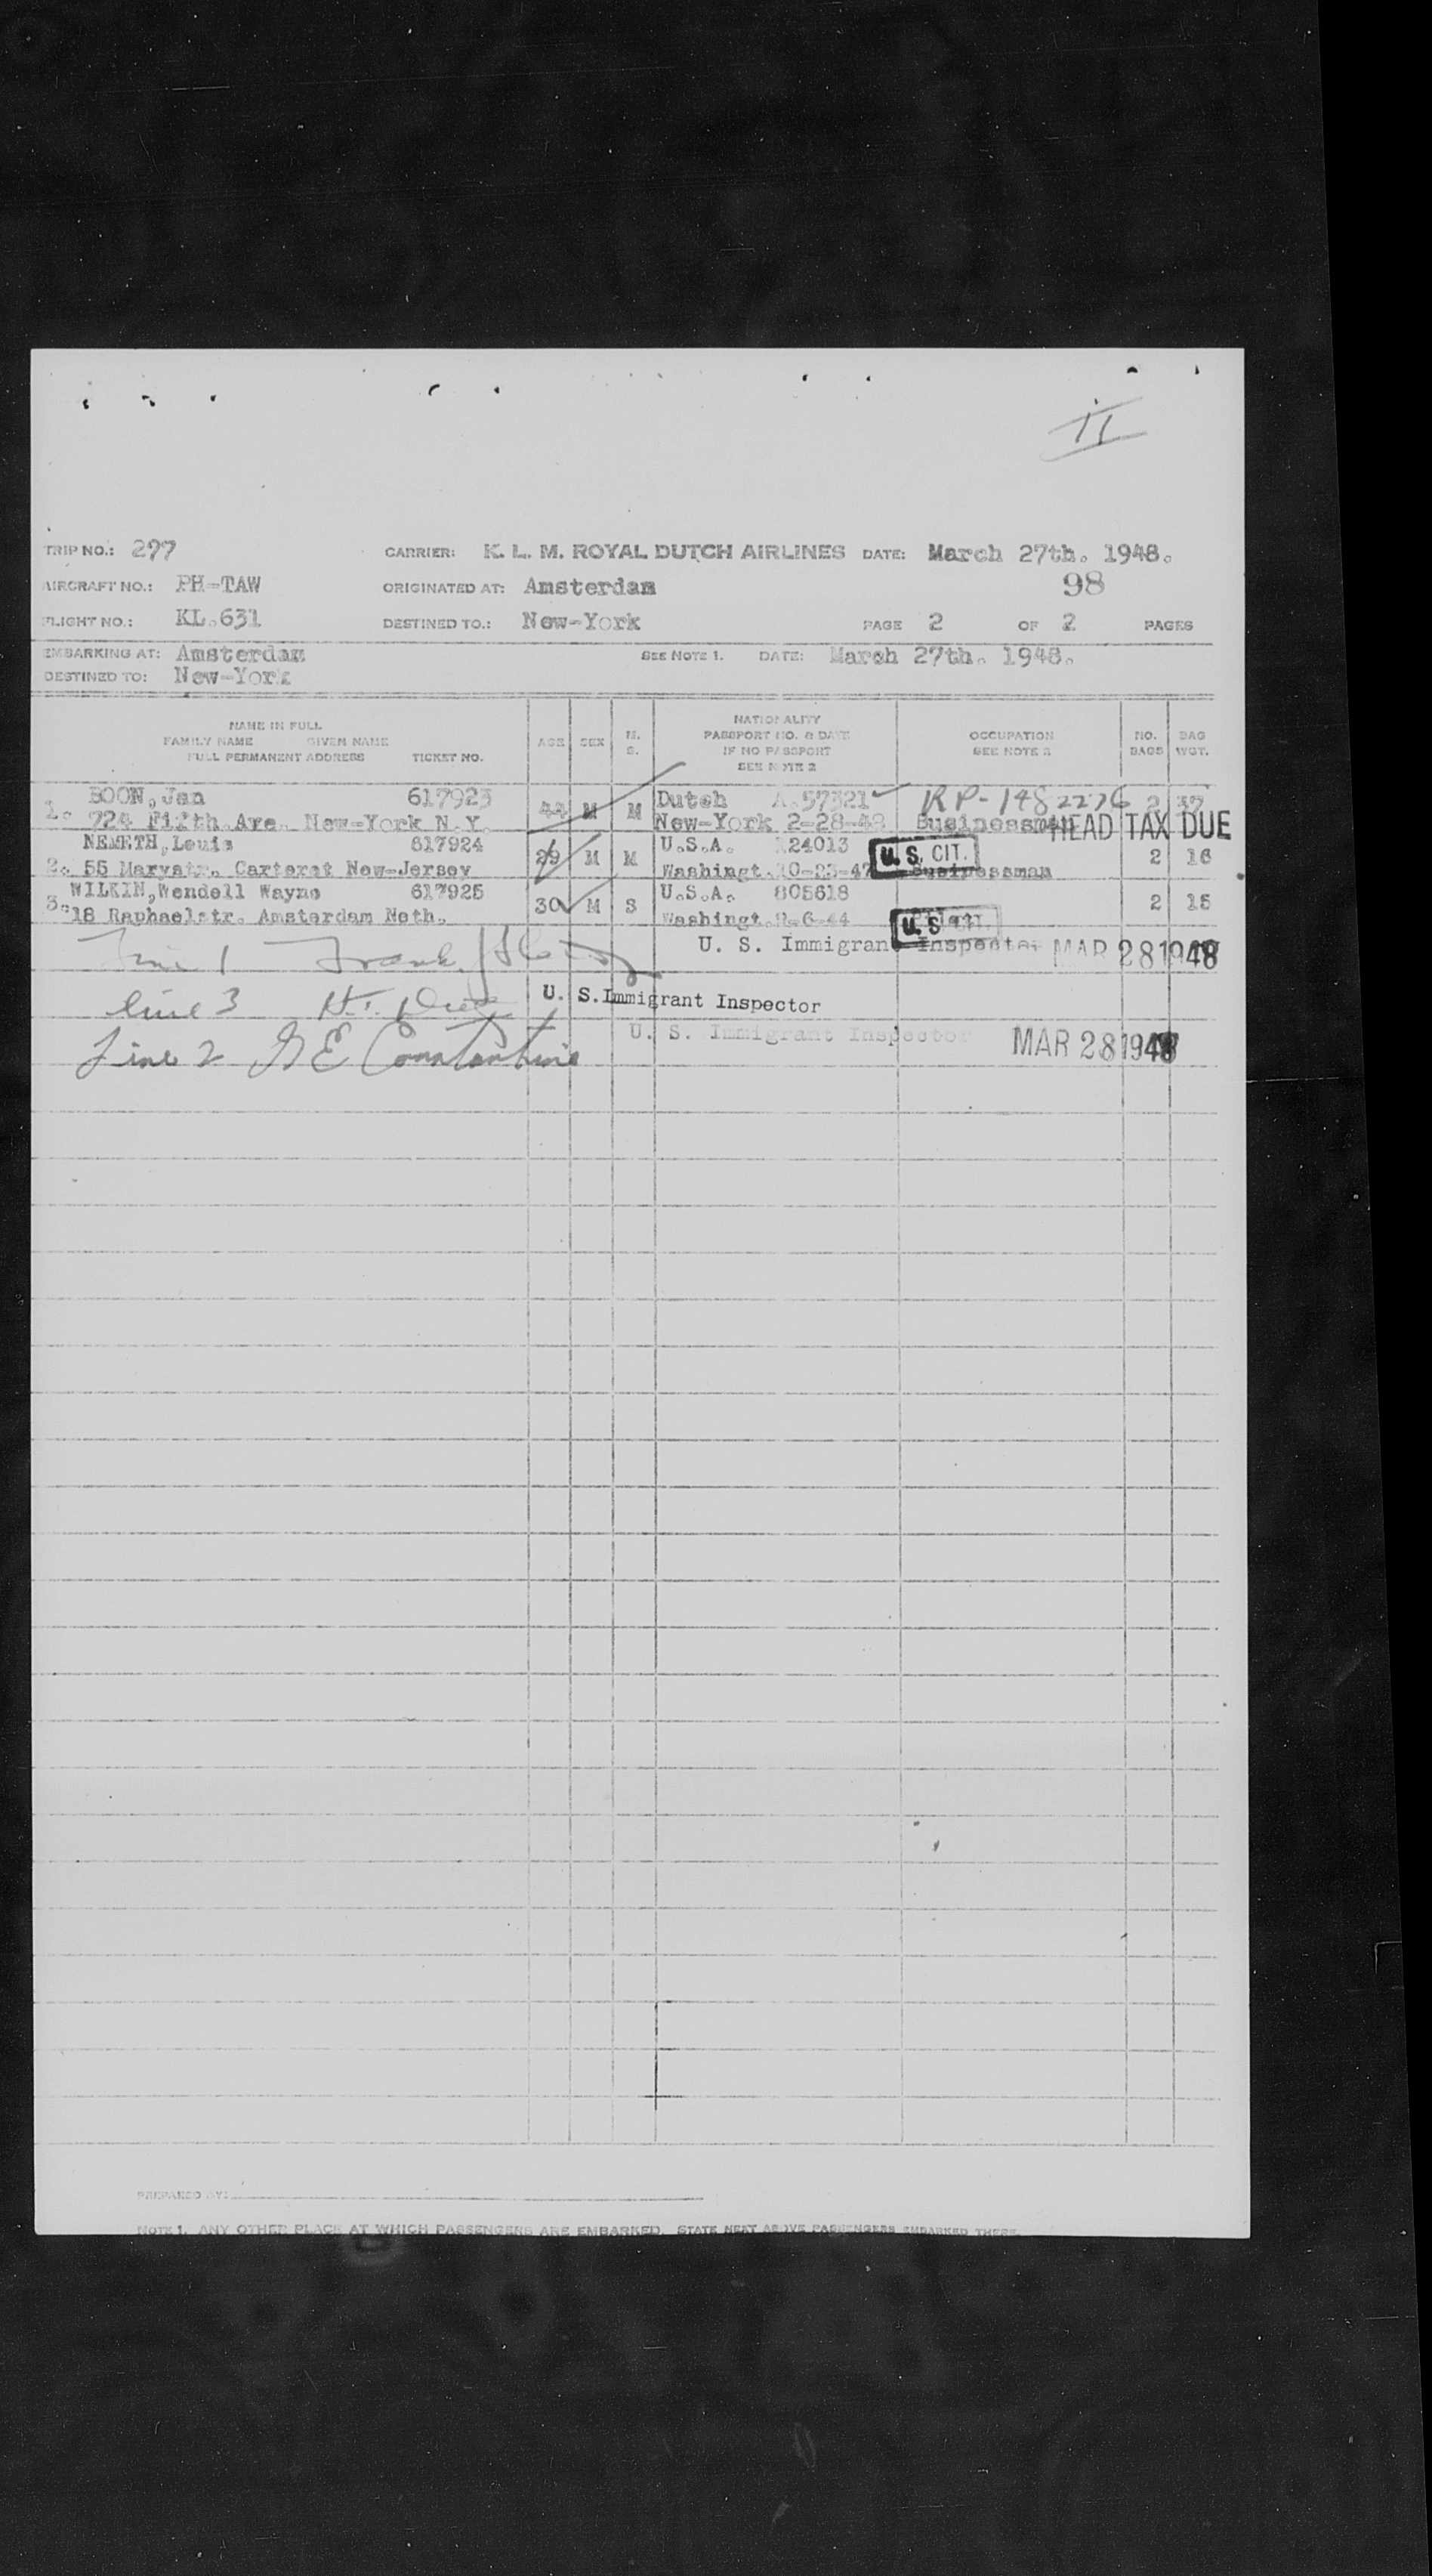 II
TRIP NO.: 277 CARRIER: K. L. M. ROYAL DUTCH AIRLINES DATE: March 27th. 1948.
98
AIRCRAFT NO.: PH-TAW ORIGINATED AT: Amsterdam
FLIGHT NO.: KL.631 DESTINED TO.: New-York PAGE 2 OF 2 PAGES
EMBARKING AT: Amsterdam SEE NOTE 1. DATE: March 27th. 1948.
DESTINED TO: New-York
NAME IN FULL
FAMILY NAME GIVEN NAME
FULL PERMANENT ADDRESS TICKET NO.
AGE SEX M. S.
NATIONALITY
PASSPORT NO. & DATE
IF NO PASSPORT
SEE NOTE 2
OCCUPATION
SEE NOTE 2
NO. BAGS
BAG WGT.
1. BOON, Jan 617923 44 M M Dutch A.57321 RP-1482276 2
724 Fifth Ave. New-York N.Y. New-York 2-28-48 Businessman HEAD TAX DUE
2. NEMETH, Louis 617924 29 M M U.S.A. 24013 U. S. CIT. 2 16
55 Marystr. Carteret New-Jersey Washingt. 10-23-47 Businessman
3. WILKIN, Wendell Wayne 617925 30 M S U.S.A. 805618 2 15
18 Raphaelstr. Amsterdam Neth. Washingt. -6-44 U. S. CIT.
U. S. Immigrant Inspector MAR 28 1948
Line 1 Frank
line 3 H.
U. S. Immigrant Inspector
U. S. Immigrant Inspector MAR 28 1948
Line 2 G E Constantine
PREPARED BY:
NOTE 1. ANY OTHER PLACE AT WHICH PASSENGERS ARE EMBARKED. STATE NEXT ABOVE PASSENGERS EMBARKED THERE.